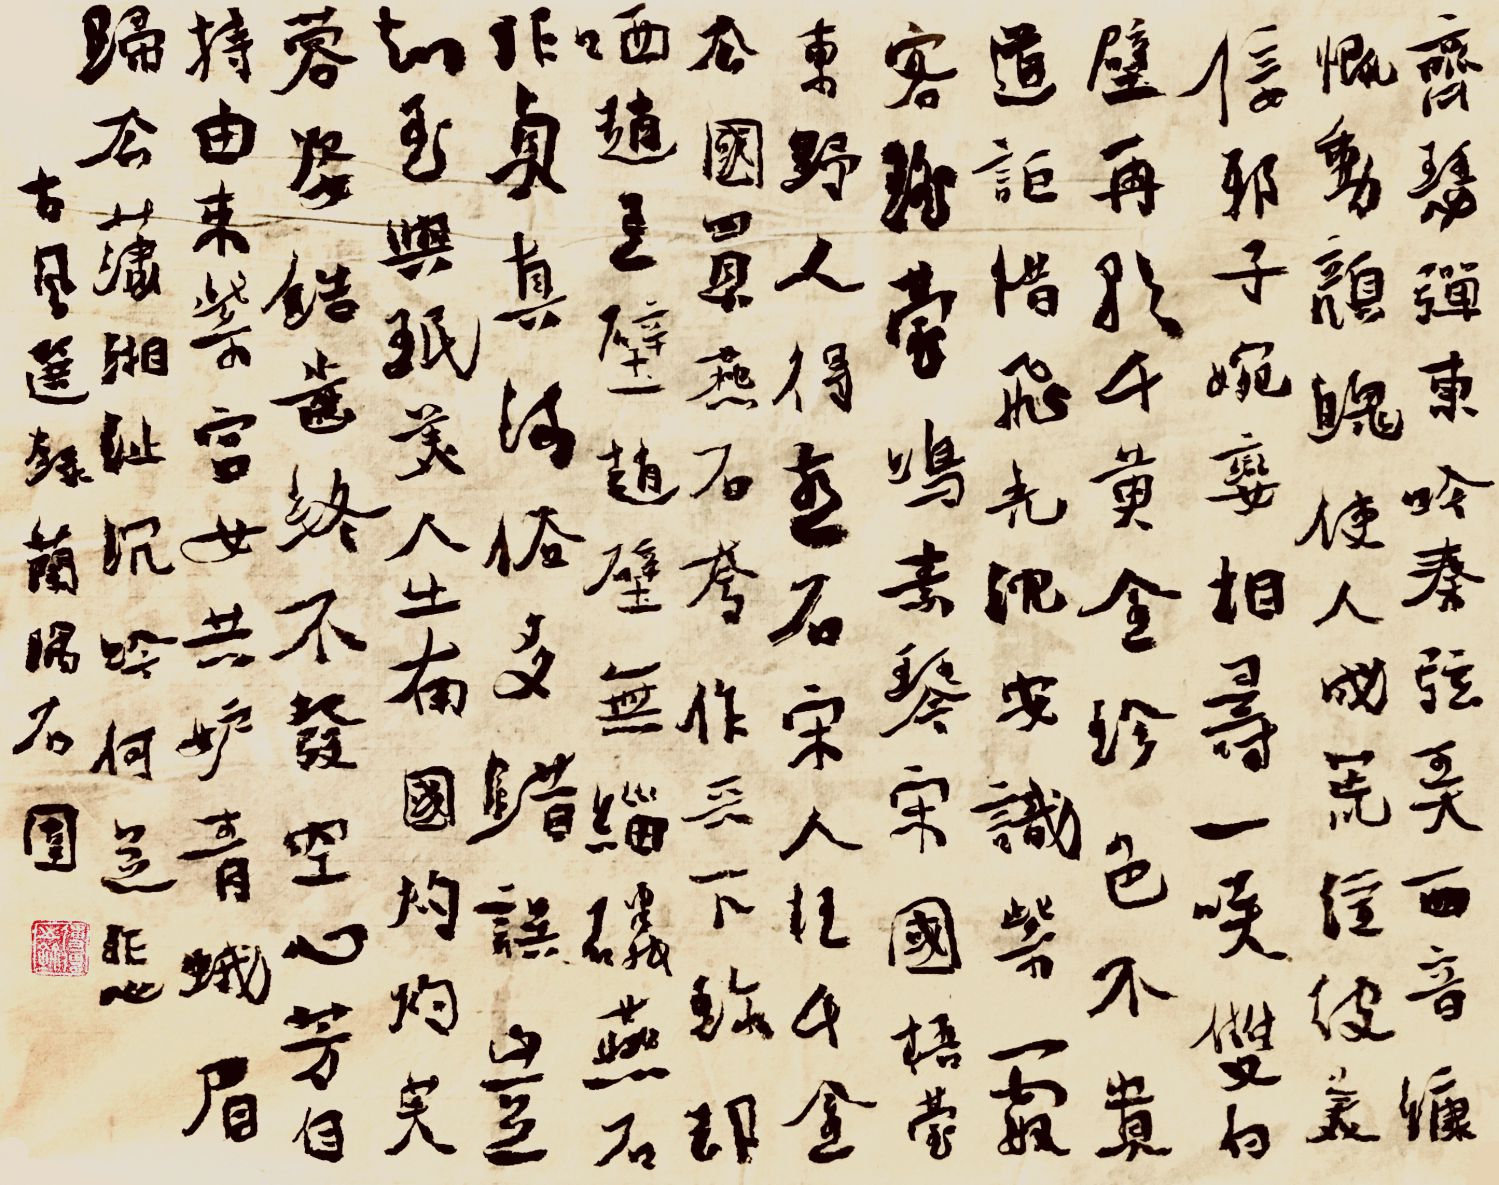 齊瑟彈東吟秦弦弄西音慷
慨動顏魄使人成荒淫彼美
佞邪子婉孌相尋一笑雙白
璧再歌千黃金珍色不貴
道詎惜飛光沉安識紫霞
客瑤臺鳴素琴宋國梧臺
東野人得燕石宋人枉千金
去國買燕石夸作天下珍却
哂趙王璧趙璧無緇磷燕石
非貞真流俗多錯誤豈
知玉與珉美人出南國灼灼芙
蓉姿皓齒終不發空心芳自
持由來紫宮女共妒青蛾眉
歸去瀟湘沚沉吟何足悲
古風選錄蘭石